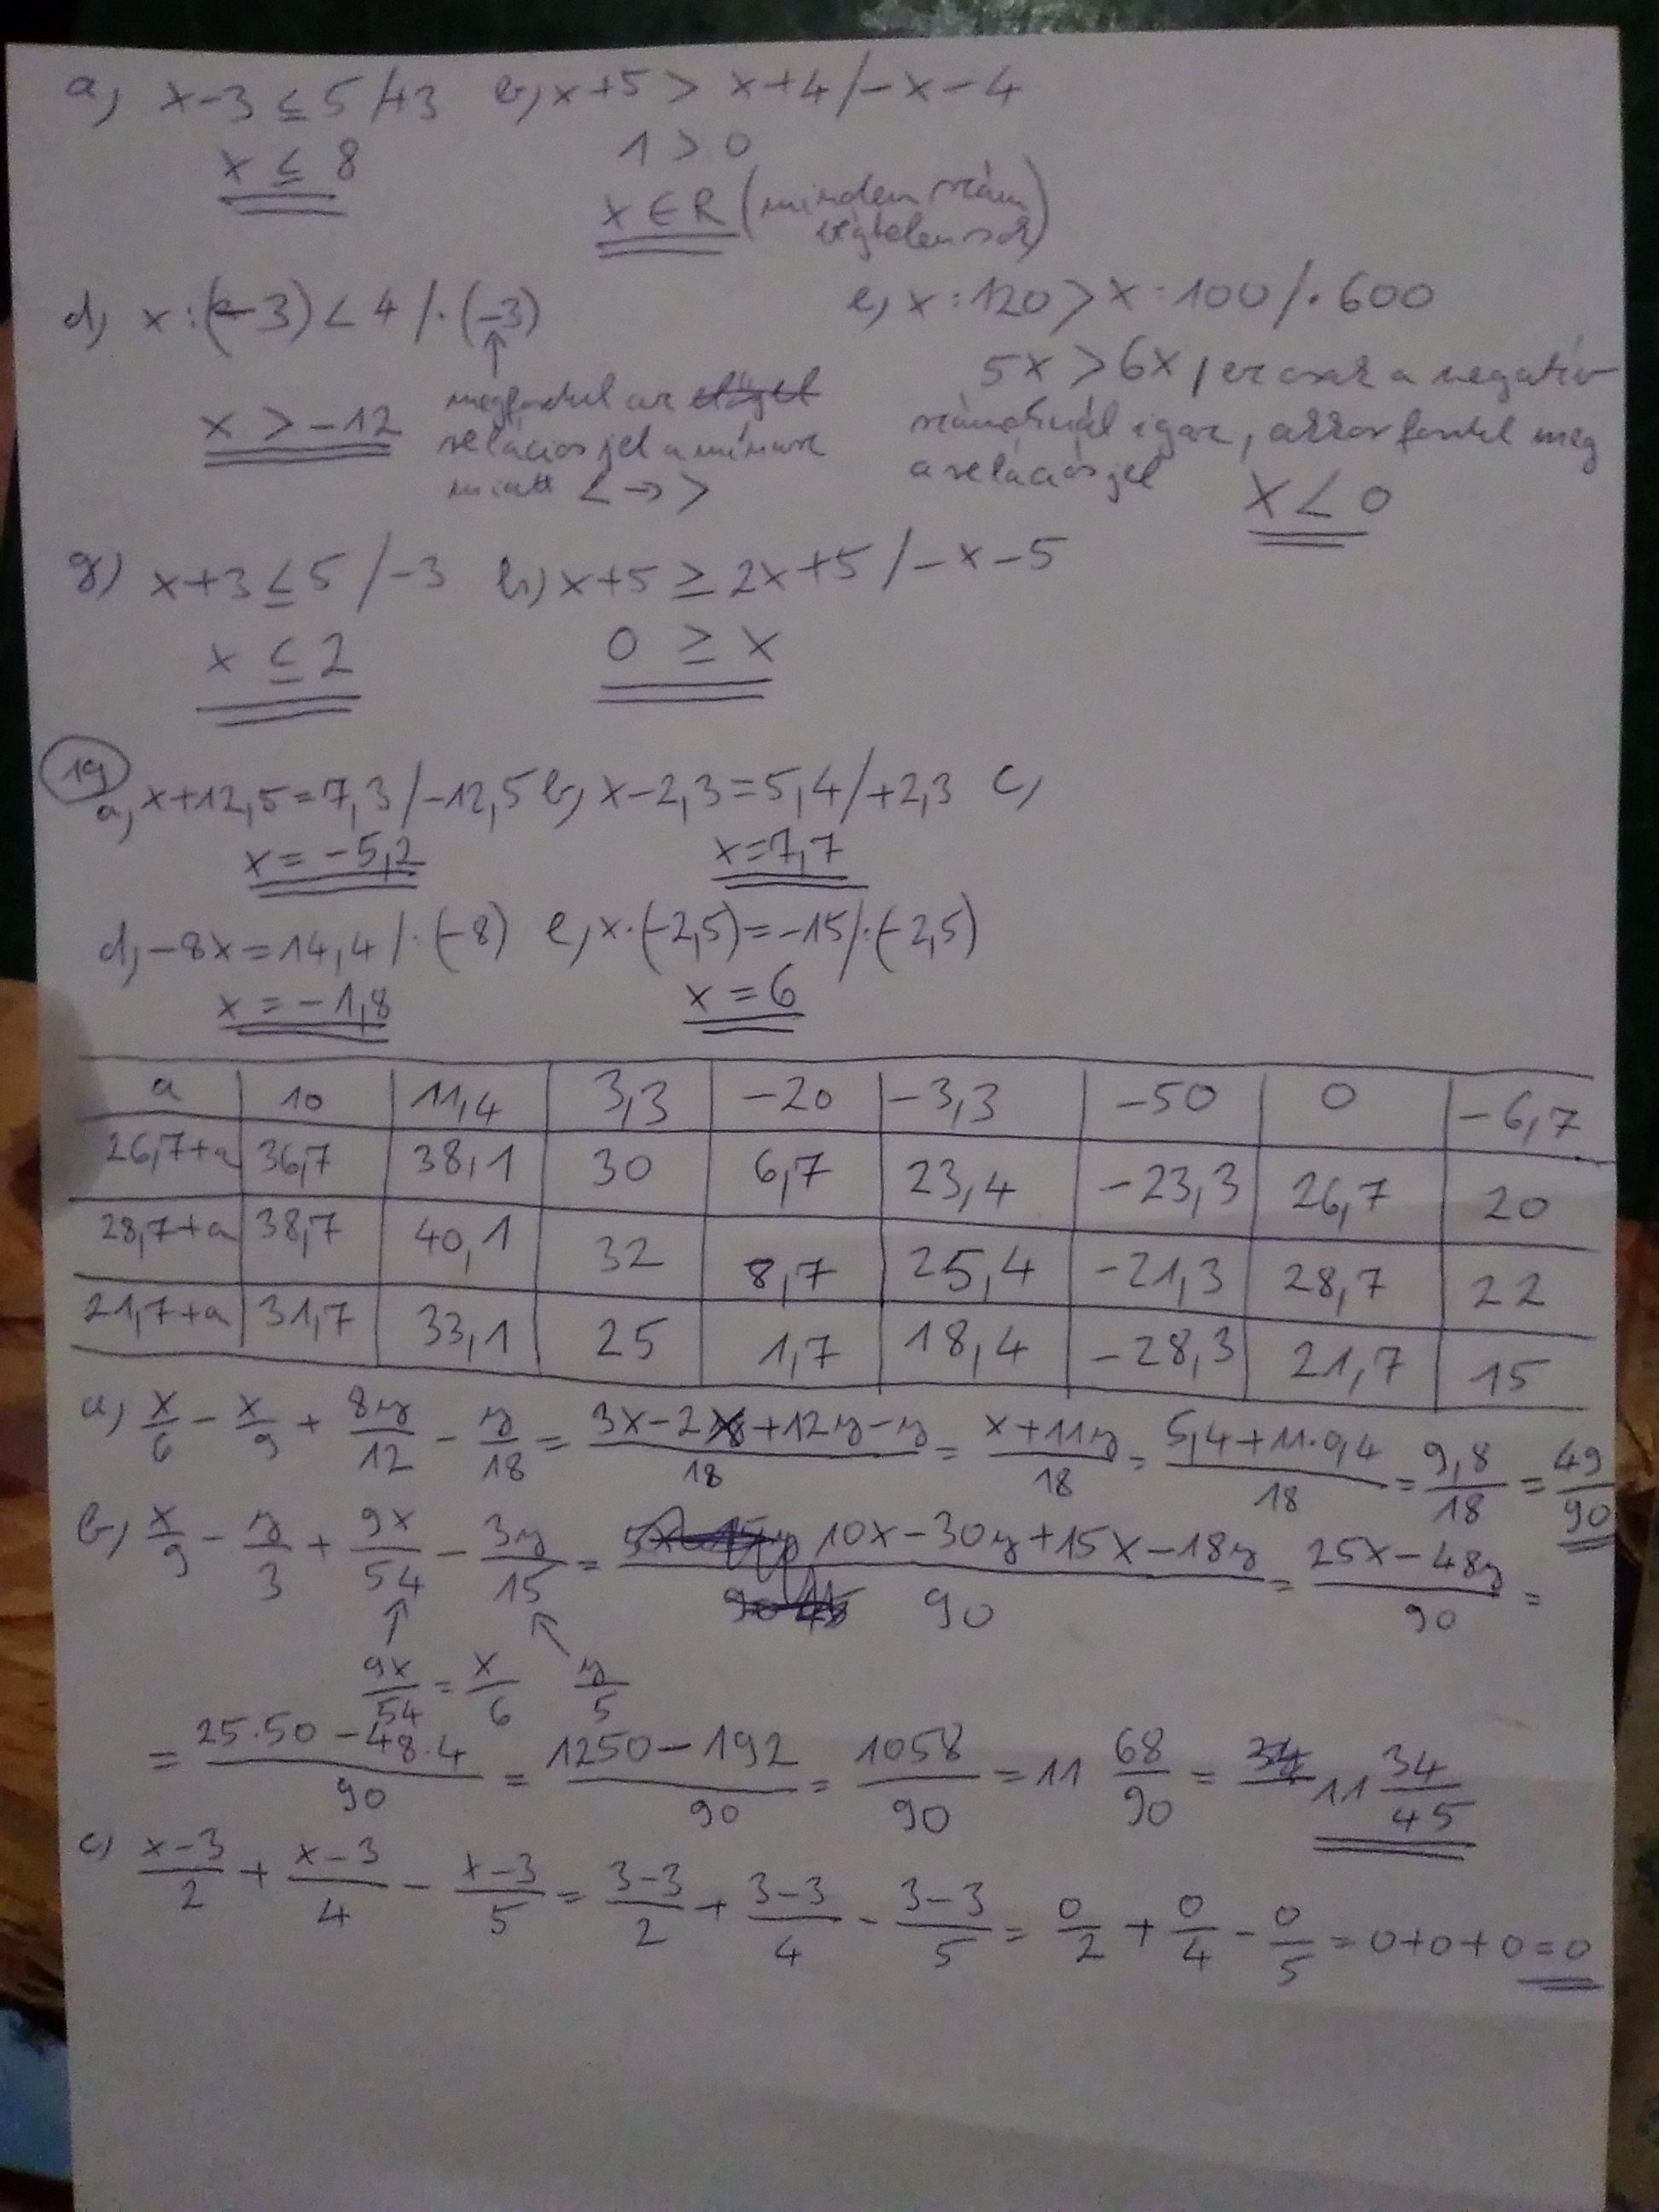 a, x-3 ≤ 5 /+3 b, x+5 > x+4 /-x-4
x ≤ 8 1 > 0
x ∈ R (minden szám
végtelen sok)
d, x:(-3) < 4 /·(-3) e, x:120 > x:100 /·600
↑ 5x > 6x, ez csak a negatív
x > -12 megfordul az előjel számoknál igaz, akkor fordul meg
relációs jel a mínusz a relációs jel x < 0
miatt < → >
g) x+3 ≤ 5 /-3 h) x+5 ≥ 2x+5 /-x-5
x ≤ 2 0 ≥ x
19
a, x+12,5=7,3 /-12,5 b, x-2,3=5,4 /+2,3 c,
x=-5,2 x=7,7
d, -8x=14,4 /:(-8) e, x·(-2,5)=-15 /:(-2,5)
x=-1,8 x=6
a 10 11,4 3,3 -20 -3,3 -50 0 -6,7
26,7+a 36,7 38,1 30 6,7 23,4 -23,3 26,7 20
28,7+a 38,7 40,1 32 8,7 25,4 -21,3 28,7 22
21,7+a 31,7 33,1 25 1,7 18,4 -28,3 21,7 15
a, x/6 - x/9 + 8y/12 - y/18 = (3x-2x+12y-y)/18 = (x+11y)/18 = (5,4+11·0,4)/18 = 9,8/18 = 49/90
b, x/9 - y/3 + 9x/54 - 3y/15 = (10x-30y+15x-18y)/90 = (25x-48y)/90 =
9x/54 = x/6 y/5
= (25·50-48·4)/90 = (1250-192)/90 = 1058/90 = 11 68/90 = 11 34/45
c) (x-3)/2 + (x-3)/4 - (x-3)/5 = (3-3)/2 + (3-3)/4 - (3-3)/5 = 0/2 + 0/4 - 0/5 = 0+0+0=0